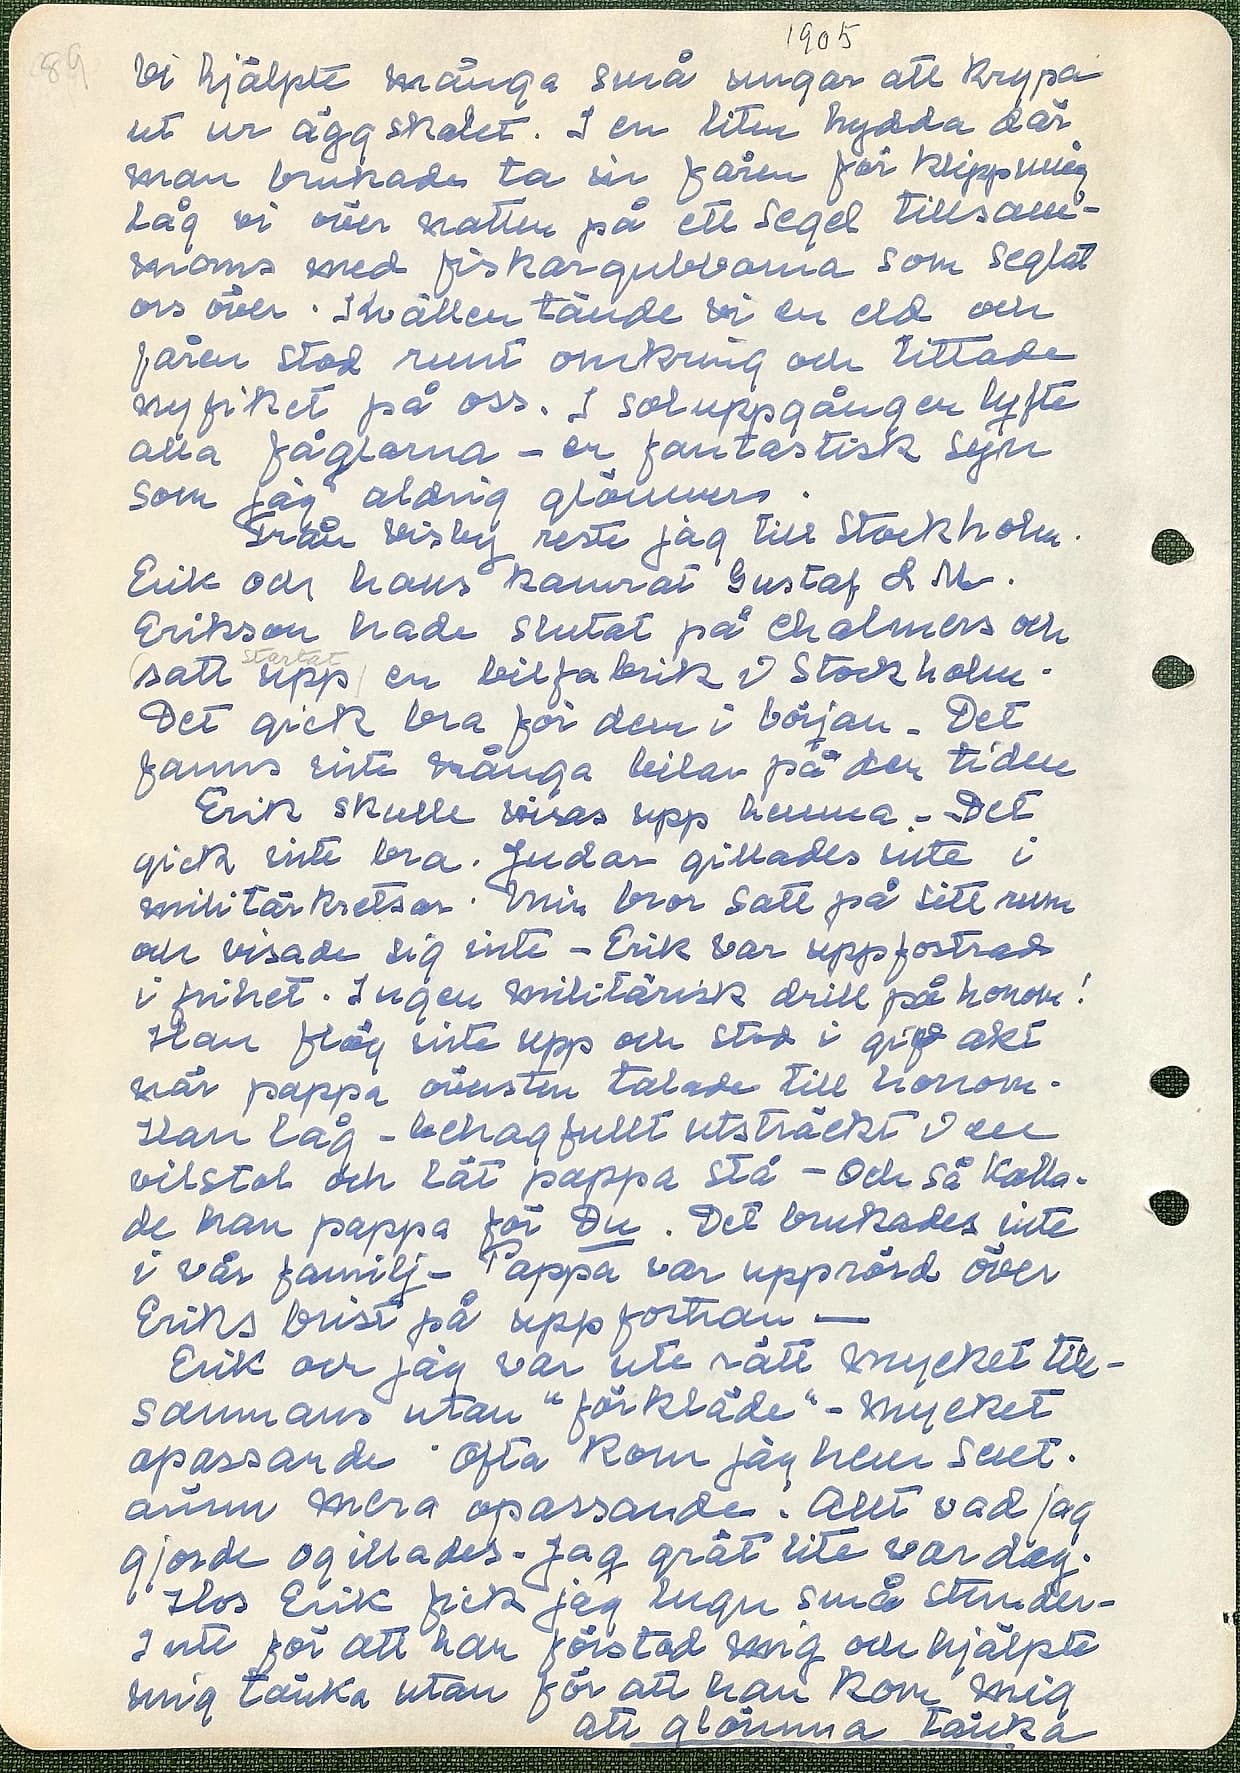 1905
89
Vi hjälpte många små ungar att krypa
ut ur äggskalet. I en liten hydda där
man brukade ta in fåren för klippning
låg vi över natten på ett segel tillsam-
mans med fiskargubbarna som seglat
oss över. Kvällen tände vi en eld och
fåren stod runt omkring och tittade
nyfiket på oss. I soluppgången lyfte
alla fåglarna – en fantastisk syn
som jag aldrig glömmer.
Från Visby reste jag till Stockholm.
Erik och hans kamrat Gustaf L M.
Erikson hade slutat på Chalmers och
startat
(satt upp) en bilfabrik i Stockholm.
Det gick bra för dem i början. Det
fanns inte många bilar på den tiden
Erik skulle visas upp hemma. – Det
gick inte bra. Judar gillades inte i
militärkretsar. Min bror satt på sitt rum
och visade sig inte – Erik var uppfostrad
i frihet. Ingen militärisk drill på honom!
Han flög inte upp och stod i giv akt
när pappa översten talade till honom.
Han låg – behagfullt utsträckt i en
vilstol och lät pappa stå – Och så kalla-
de han pappa för Du. Det brukades inte
i vår familj – Pappa var upprörd över
Eriks brist på uppfostran —
Erik och jag var ute rätt mycket till-
sammans utan "förkläde" – mycket
opassande. Ofta kom jag hem sent.
ännu mera opassande. Allt vad jag
gjorde ogillades. Jag grät lite var dag.
Hos Erik fick jag lugn små stunder –
Inte för att han förstod mig och hjälpte
mig tänka utan för att han kom mig
att glömma tänka